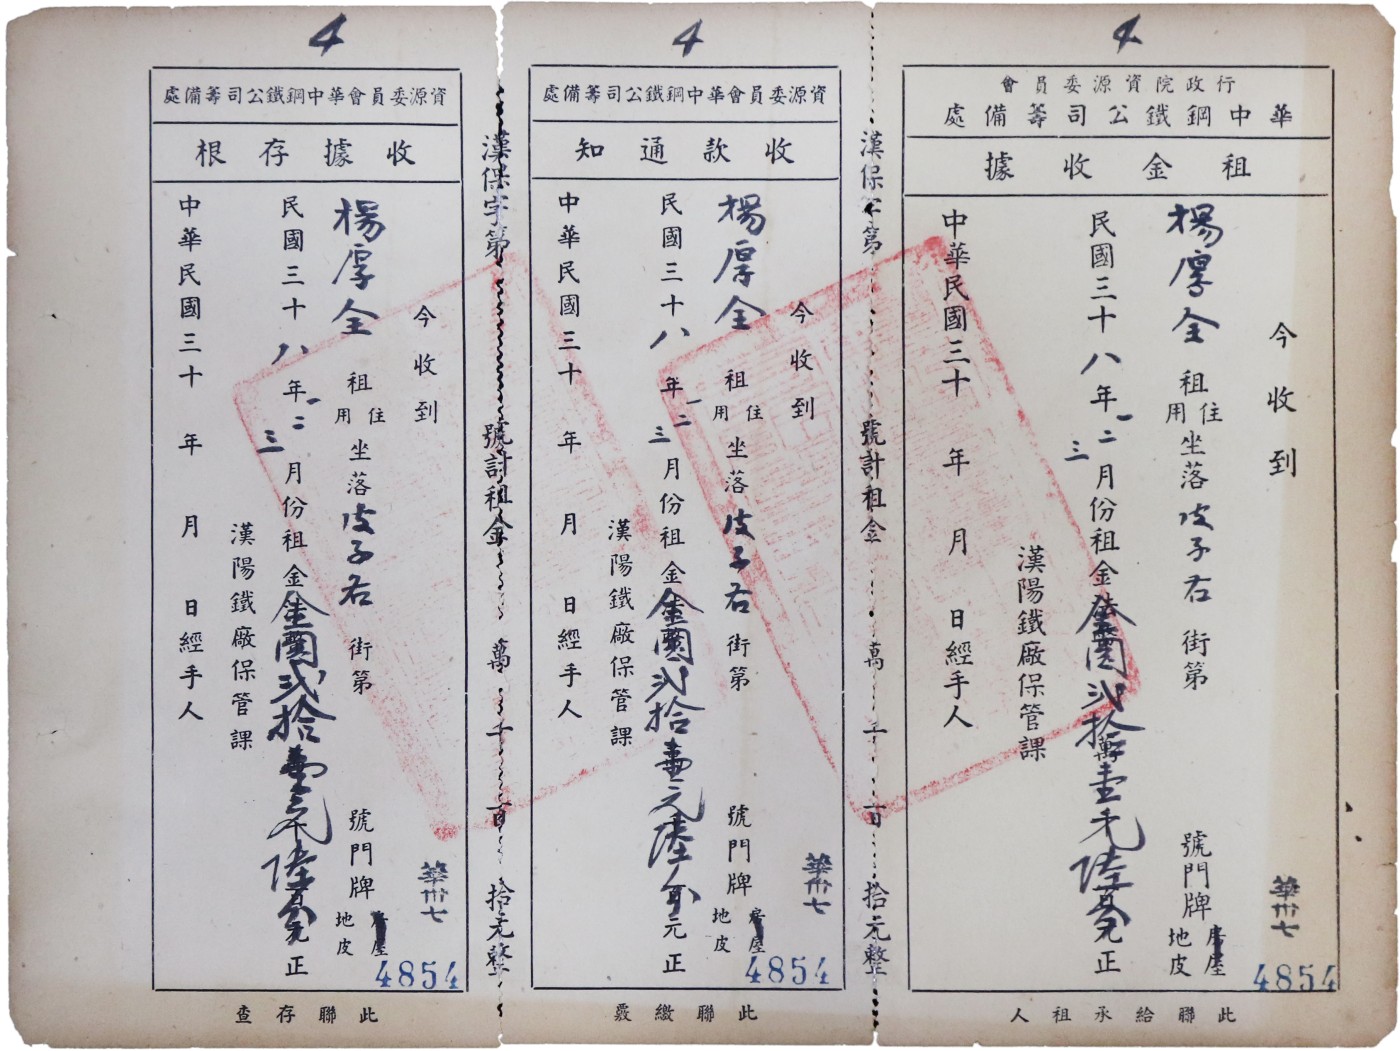 4
行政院資源委員會
華中鋼鐵公司籌備處
租金收據
今收到
楊厚全租住用坐落皮子右街第 號門牌房屋地皮
民國三十八年一二三月份租金金圓貳拾壹元陸分元正
漢陽鐵廠保管課
中華民國三十 年 月 日經手人
華卅七
4854
此聯給承租人
漢保字第 號計租金 萬 千 百 拾元整
4
資源委員會華中鋼鐵公司籌備處
收款通知
今收到
楊厚全租住用坐落皮子右街第 號門牌房屋地皮
民國三十八年一二三月份租金金圓貳拾壹元陸分元正
漢陽鐵廠保管課
中華民國三十 年 月 日經手人
華卅七
4854
此聯繳覈
漢保字第 號計租金 萬 千 百 拾元整
4
資源委員會華中鋼鐵公司籌備處
收據存根
今收到
楊厚全租住用坐落皮子右街第 號門牌房屋地皮
民國三十八年一二三月份租金金圓貳拾壹元陸分元正
漢陽鐵廠保管課
中華民國三十 年 月 日經手人
華卅七
4854
此聯存查